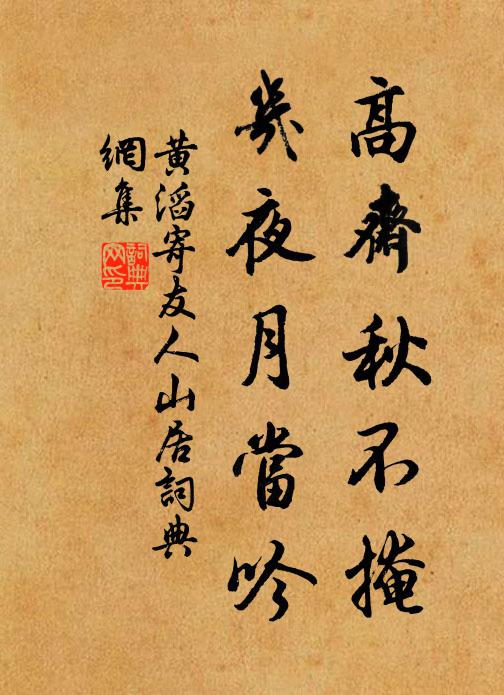 高齋秋不掩
幾夜月當吟
黃滔寄友人山居詞典
網集
詞典
网印